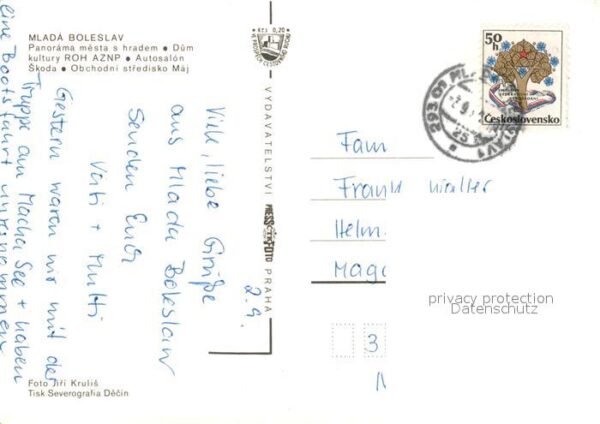 MLADÁ BOLESLAV
Panoráma města s hradem • Dům
kultury ROH AZNP • Autosalón
Škoda • Obchodní středisko Máj
Kčs 0,20
VYDAVATELSTVÍ PRESSFOTO PRAHA
2.9.
Viele, liebe Grüße
aus Mlada Boleslaw
Senden Euch
Vati + Mutti
Gestern waren wir mit der
Truppe am Macha See + haben
eine Bootsfahrt unternommen
Foto Jiří Kruliš
Tisk Severografia Děčín
50 h
Československo
293 01
Fam
Frank Walter
Helm.
Magd
3
privacy protection
Datenschutz